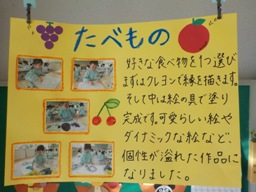 たべもの
好きな食べ物を1つ選び
まずはクレヨンで縁を描きます。
そして中は絵の具で塗り
完成です。可愛らしい絵や
ダイナミックな絵など、
個性が溢れた作品に
なりました。